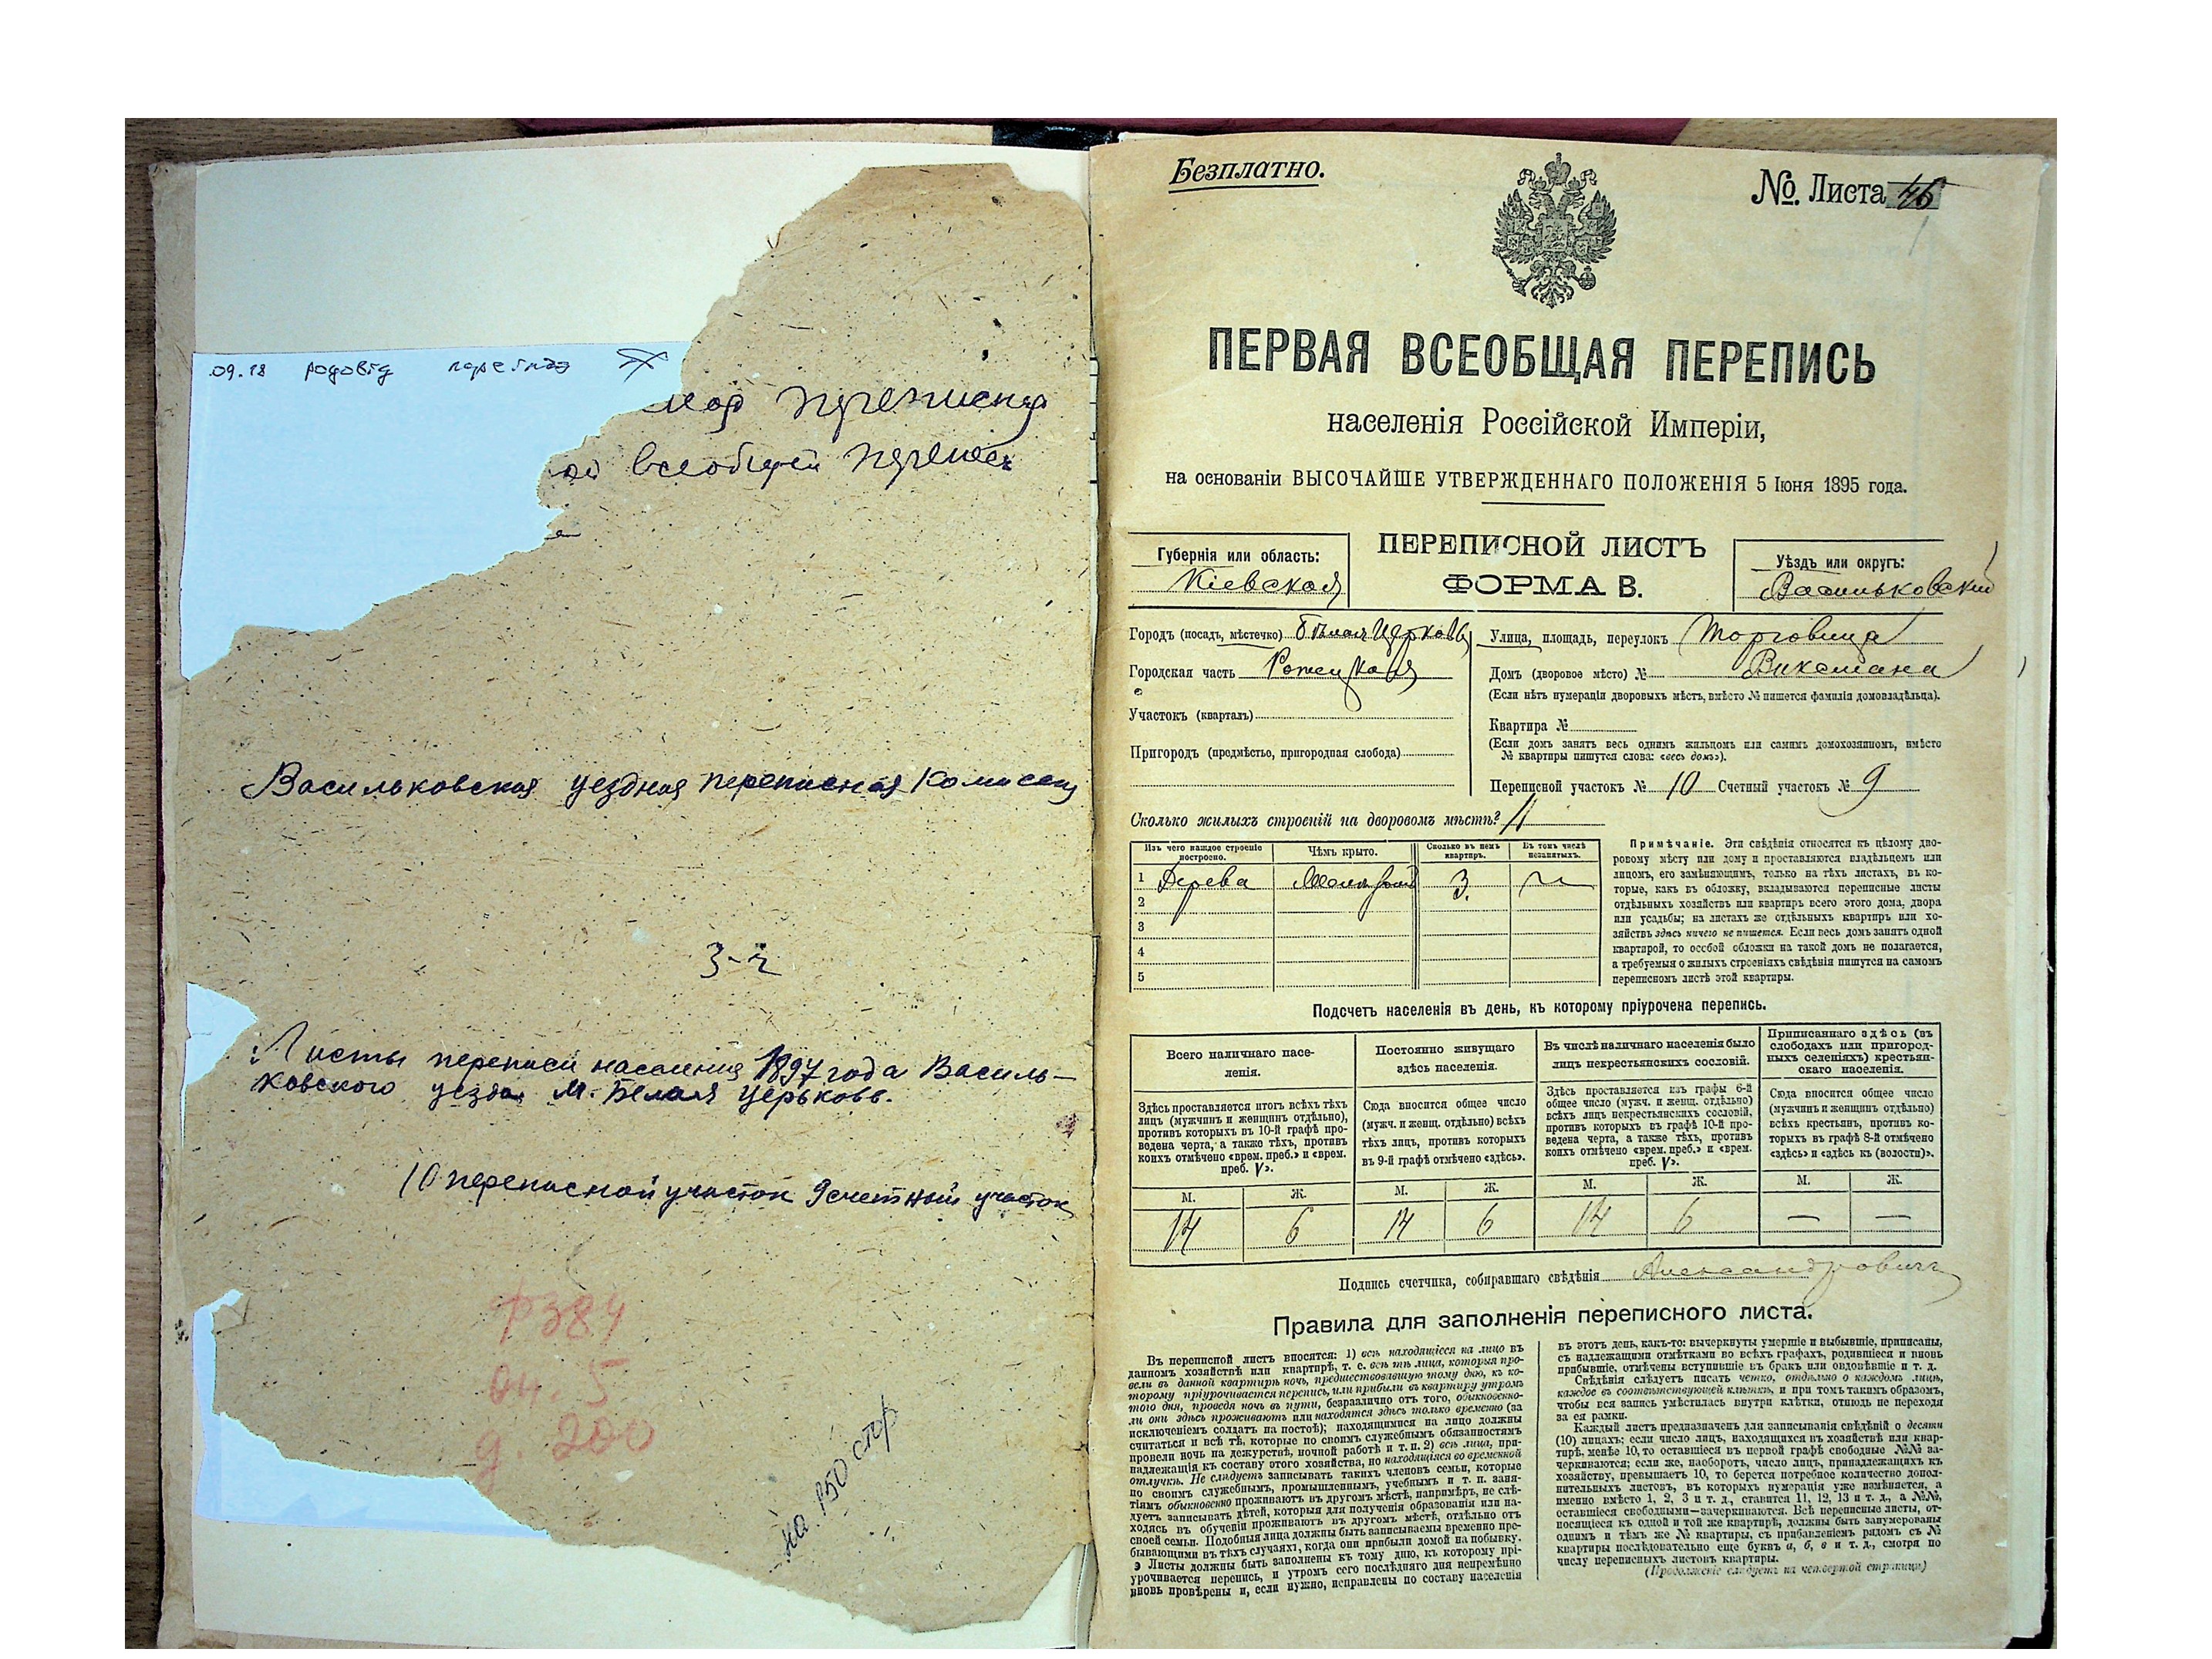 09.18 родовід
переписная
всеобщей
Васильковская уездная переписная комиссия
3-ч
Листы переписи населения 1897 года Василь-
ковского уезда м. Белая Церьковь.
10 переписной участок 9 счетный участок
ф 384
оп. 5
д. 200
на 150 стр
Безплатно.
№. Листа 46
ПЕРВАЯ ВСЕОБЩАЯ ПЕРЕПИСЬ
населенія Россійской Имперіи,
на основаніи ВЫСОЧАЙШЕ УТВЕРЖДЕННАГО ПОЛОЖЕНІЯ 5 Іюня 1895 года.
Губернія или область:
Кіевская
ПЕРЕПИСНОЙ ЛИСТЪ
ФОРМА В.
Уѣздъ или округъ:
Васильковский
Городъ (посадъ, мѣстечко) Бѣлая Церковь
Городская часть
Участокъ (кварталъ)
Пригородъ (предмѣстье, пригородная слобода)
Улица, площадь, переулокъ Торговица
Домъ (дворовое мѣсто) №
(Если нѣтъ нумераціи дворовыхъ мѣстъ, вмѣсто № пишется фамилія домовладѣльца).
Квартира №
(Если домъ занятъ весь однимъ жильцомъ или самимъ домохозяиномъ, вмѣсто
№ квартиры пишутся слова: «весь домъ»).
Переписной участокъ № 10 Счетный участокъ № 9
Сколько жилыхъ строеній на дворовомъ мѣстѣ? 1
Изъ чего каждое строеніе
построено.
Чѣмъ крыто.
Сколько въ немъ
квартиръ.
Въ томъ числѣ
незанятыхъ.
1 Дерева 3.
2
3
4
5
Примѣчаніе. Эти свѣдѣнія относятся къ цѣлому дво-
ровому мѣсту или дому и проставляются владѣльцемъ или
лицомъ, его замѣняющимъ, только на тѣхъ листахъ, въ ко-
торые, какъ въ обложку, вкладываются переписные листы
отдѣльныхъ хозяйствъ или квартиръ всего этого дома, двора
или усадьбы; на листахъ же отдѣльныхъ квартиръ или хо-
зяйствъ здѣсь ничего не пишется. Если весь домъ занятъ одной
квартирой, то особой обложки на такой домъ не полагается,
а требуемыя о жилыхъ строеніяхъ свѣдѣнія пишутся на самомъ
переписномъ листѣ этой квартиры.
Подсчетъ населенія въ день, къ которому пріурочена перепись.
Всего наличнаго насе-
ленія.
Постоянно живущаго
здѣсь населенія.
Въ числѣ наличнаго населенія было
лицъ некрестьянскихъ сословій.
Приписаннаго здѣсь (въ
слободахъ или пригород-
ныхъ селеніяхъ) крестьян-
скаго населенія.
Здѣсь проставляется итогъ всѣхъ тѣхъ
лицъ (мужчинъ и женщинъ отдѣльно),
противъ которыхъ въ 10-й графѣ про-
ведена черта, а также тѣхъ, противъ
коихъ отмѣчено «врем. преб.» и «врем.
преб. V».
Сюда вносится общее число
(мужч. и женщ. отдѣльно) всѣхъ
тѣхъ лицъ, противъ которыхъ
въ 9-й графѣ отмѣчено «здѣсь».
Здѣсь проставляется изъ графы 6-й
общее число (мужч. и женщ. отдѣльно)
всѣхъ лицъ некрестьянскихъ сословій,
противъ которыхъ въ графѣ 10-й про-
ведена черта, а также тѣхъ, противъ
коихъ отмѣчено «врем. преб.» и «врем.
преб. V».
Сюда вносится общее число
(мужчинъ и женщинъ отдѣльно)
всѣхъ крестьянъ, противъ ко-
торыхъ въ графѣ 8-й отмѣчено
«здѣсь» и «здѣсь къ (волости)».
М. Ж. М. Ж. М. Ж. М. Ж.
14 6 14 6 14 6 — —
Подпись счетчика, собиравшаго свѣдѣнія Александровичъ
Правила для заполненія переписного листа.
Въ переписной листъ вносятся: 1) всѣ находящіеся на лицо въ
данномъ хозяйствѣ или квартирѣ, т. е. всѣ тѣ лица, которыя про-
вели въ данной квартирѣ ночь, предшествовавшую тому дню, къ ко-
торому пріурочивается перепись, или прибыли въ квартиру утромъ
того дня, проведя ночь въ пути, безразлично отъ того, обыкновенно-
ли они здѣсь проживаютъ или находятся здѣсь только временно (за
исключеніемъ солдатъ на постоѣ); находящимися на лицо должны
считаться и всѣ тѣ, которые по своимъ служебнымъ обязанностямъ
провели ночь на дежурствѣ, ночной работѣ и т. п. 2) всѣ лица, при-
надлежащія къ составу этого хозяйства, но находящіяся во временной
отлучкѣ. Не слѣдуетъ записывать такихъ членовъ семьи, которые
по своимъ служебнымъ, промышленнымъ, учебнымъ и т. п. заня-
тіямъ обыкновенно проживаютъ въ другомъ мѣстѣ, напримѣръ, не слѣ-
дуетъ записывать дѣтей, которыя для полученія образованія или на-
ходясь въ обученіи проживаютъ въ другомъ мѣстѣ, отдѣльно отъ
своей семьи. Подобныя лица должны быть записываемы временно пре-
бывающими въ тѣхъ случаяхъ, когда они прибыли домой на побывку.
Листы должны быть заполнены къ тому дню, къ которому прі-
урочивается перепись, и утромъ сего послѣдняго дня непремѣнно
вновь провѣрены и, если нужно, исправлены по составу населенія
въ этотъ день, какъ-то: вычеркнуты умершіе и выбывшіе, приписаны,
съ надлежащими отмѣтками во всѣхъ графахъ, родившіеся и вновь
прибывшіе, отмѣчены вступившіе въ бракъ или овдовѣвшіе и т. д.
Свѣдѣнія слѣдуетъ писать четко, отдѣльно о каждомъ лицѣ,
каждое въ соотвѣтствующей клѣткѣ, и при томъ такимъ образомъ,
чтобы вся запись умѣстилась внутри клѣтки, отнюдь не переходя
за ея рамки.
Каждый листъ предназначенъ для записыванія свѣдѣній о десяти
(10) лицахъ; если число лицъ, находящихся въ хозяйствѣ или квар-
тирѣ, менѣе 10, то оставшіеся въ первой графѣ свободные №№ за-
черкиваются; если же, наоборотъ, число лицъ, принадлежащихъ къ
хозяйству, превышаетъ 10, то берется потребное количество допол-
нительныхъ листовъ, въ которыхъ нумерація уже измѣняется, а
именно вмѣсто 1, 2, 3 и т. д., ставится 11, 12, 13 и т. д., а №№,
оставшіеся свободными—зачеркиваются. Всѣ переписные листы, от-
носящіеся къ одной и той же квартирѣ, должны быть занумерованы
однимъ и тѣмъ же № квартиры, съ прибавленіемъ рядомъ съ №
квартиры послѣдовательно еще буквъ а, б, в и т. д., смотря по
числу переписныхъ листовъ квартиры.
(Продолженіе слѣдуетъ на четвертой страницѣ)